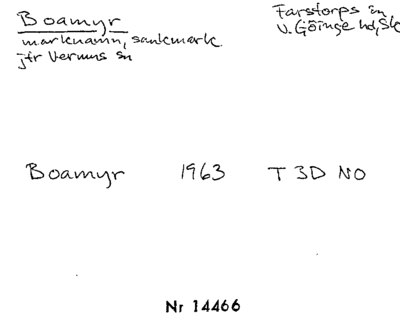 Boamyr
Farstorps sn
marknamn, sankmark
V. Göinge hd, Sk
jfr Verums sn
Boamyr 1963 T 3D NO
Nr 14466